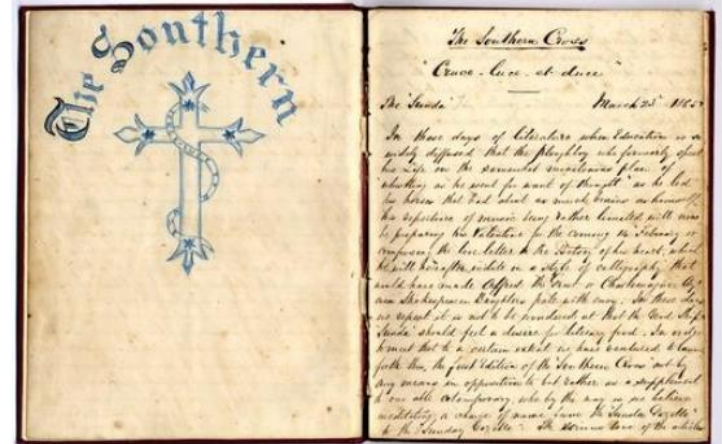 The Southern
The Southern Cross
"Cruce - luce - et - duce"
The "Sunda" March 23rd
In these days of literature when Education is so
widely diffused that the ploughboy who formerly spent
his life on the somewhat monotonous plan of
whistling as he went for want of thought" as he led
his horses that had about as much brains as himself
his repertoire of music being rather limited will now
be preparing his Valentine for the coming 14 February or
composing the love letter to the Victory of his heart, which
he will hereafter indite in a style of calligraphy that
would have made Alfred the Great or Charlemagne
Shakespeares Daughters pale with envy. In these days
we repeat it is not to be wondered at that the Good Ship
Sunda" should feel a desire for literary food. In order
to meet that to a certain extent we have ventured to launch
forth this, the first Edition of the "Southern Cross" not by
any means in opposition to but rather as a supplement
to our able cotemporary, who by the way is we believe
meditating a change of name from the "Sunda Gazette"
to the "Sunday Gazette". The serious tone of the articles